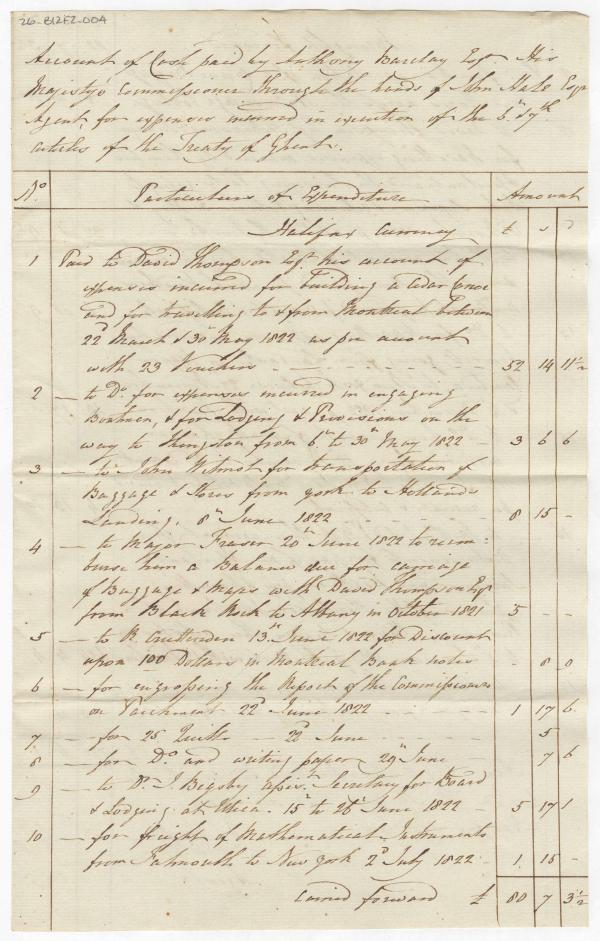 26-B12F2-004
Account of Cash paid by Anthony Barclay Esqr. His
Majesty's Commissioner through the hands of John Hale Esqr
Agent, for expenses incurred in execution of the 6th & 7th
articles of the Treaty of Ghent.
No. Particulars of Expenditure Amount
Halifax Currency £ s D
1 Paid to David Thompson Esqr. his account of
expenses incurred for building a Cedar Canoe
and for travelling to & from Montreal between
22d March & 30th May 1822 as per account
with 23 Vouchers - - - - 52 14 11 1/2
2 — to Do. for expenses incurred in engaging
Boatmen, & for Lodging & Provisions on the
way to Kingston from 6th to 30th May 1822 - 3 6 6
3 — to John Wilmot for transportation of
Baggage & Stores from York to Hollands
Landing. 8th June 1822 - - - - 8 15 -
4 — to Major Fraser 20th June 1822 to reim=
burse him a Balance due for carriage
of Baggage & Maps with David Thompson Esqr
from Black Rock to Albany in October 1821 5 - -
5 — to R. Cruttenden 13th June 1822 for Discount
upon 100 Dollars in Montreal Bank notes - 8 9
6 — for engrossing the Report of the Commissioners
on Parchment 22d June 1822 - - - 1 17 6
7 — for 25 Quills - 22d June - - - 5
8 — for Do. and writing paper 29th June 7 6
9 — to Dr. J. Bigsby assist. Secretary for Board
& Lodging at Utica. 15th to 26th June 1822 - 5 17 1
10 — for freight of Mathematical Instruments
from Falmouth to New York 2d July 1822 - 1 15 -
Carried forward £ 80 7 3 1/2